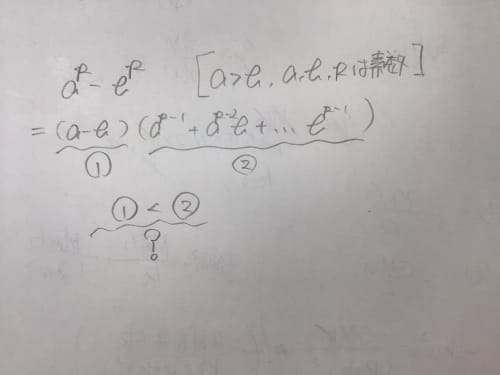 a^p - b^p [a>b, a, b, pは素数]
= (a-b) (a^{p-1} + a^{p-2}b + ... b^{p-1})
① ②
① < ②
?